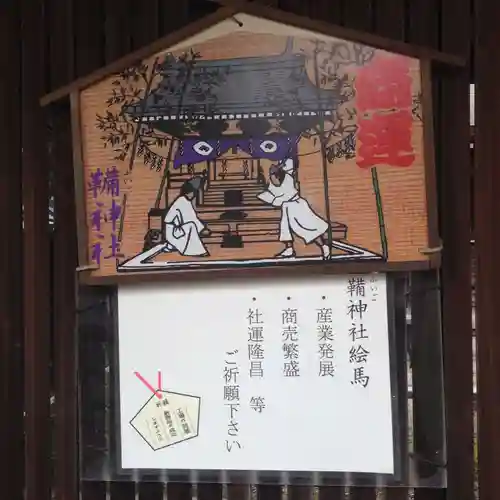 開運
鞴神社
ふいご
鞴神社絵馬
・産業発展
・商売繁盛
・社運隆昌 等
ご祈願下さい